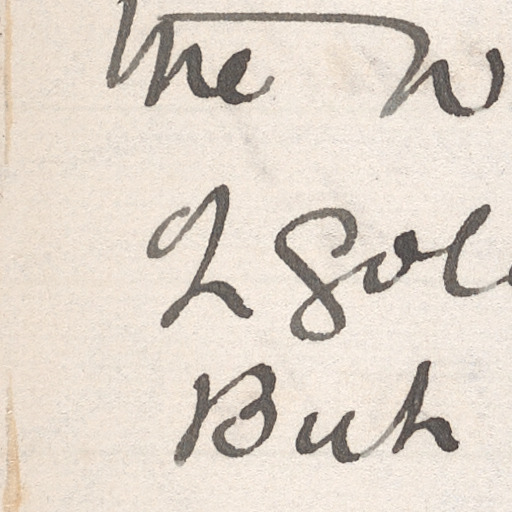 the w
I sol
But